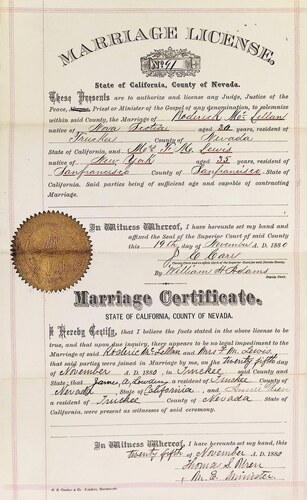 MARRIAGE LICENSE,
No 41
State of California, County of Nevada.
These Presents are to authorize and license any Judge, Justice of the
Peace, Priest or Minister of the Gospel of any denomination, to solemnize
within said County, the Marriage of Roderick McLellan
native of Nova Scotia aged 30 years, resident of
Truckee County of Nevada
State of California, and F. M. Lewis
native of New York aged 35 years, resident of
Sanfrancisco County of Sanfrancisco
State of California. Said parties being of sufficient age and capable of contracting
Marriage.
In Witness Whereof, I have hereunto set my hand and
affixed the Seal of the Superior Court of said County
this 19th day of November A. D. 1880
J. C. Carr
By William H. Adams
Marriage Certificate.
STATE OF CALIFORNIA, COUNTY OF NEVADA.
I Hereby Certify, that I believe the facts stated in the above license to be
true, and that upon due inquiry, there appears to be no legal impediment to the
Marriage of said Roderic McLellan and Mrs F. M. Lewis,
that said parties were joined in Marriage by me, on the twenty fifth day
of November A. D. 1880, in Truckee said County and
State; that James A. Lowden a resident of Truckee County of
Nevada State of California, and
resident of Truckee County of Nevada State of
California, were present as witnesses of said ceremony.
In Witness Whereof, I have hereunto set my hand, this
twenty fifth of November A. D. 1880
Thomas S.
M. E. Minister